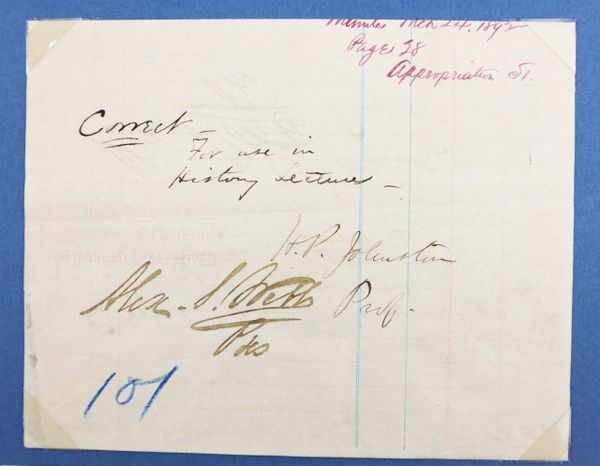 Minutes Mch 24. 1892
Page 28
Appropriation St.
Correct –
For use in
History Lectures –
H. P. Johnston
Prof.
Alex. S. Webb
Pres
181
FORWARDED APPROVED